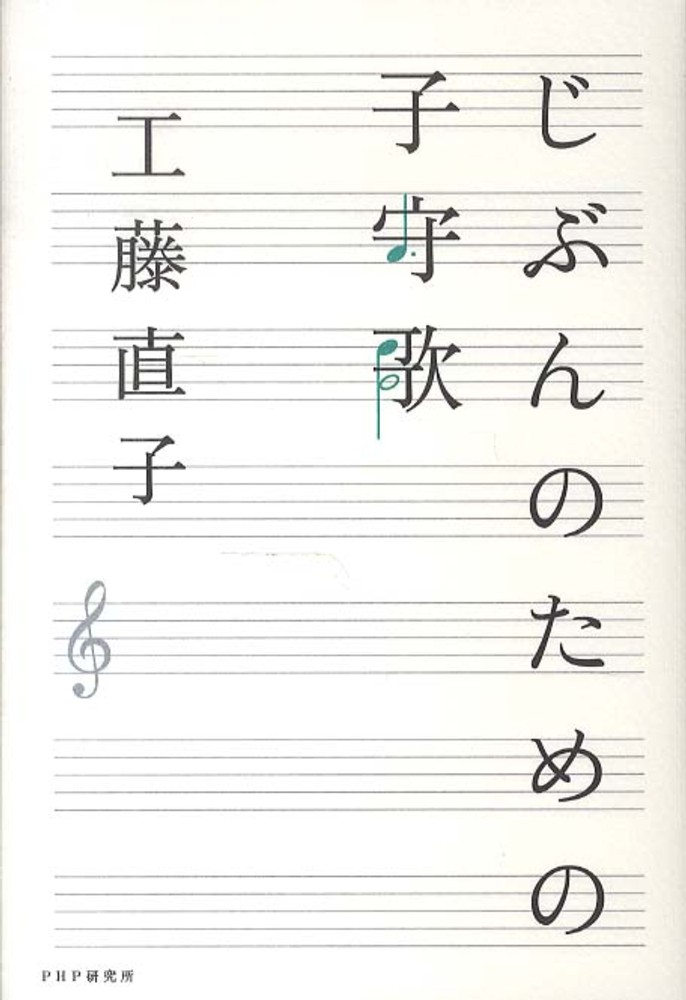 じぶんのための
子守歌
工藤直子
PHP研究所